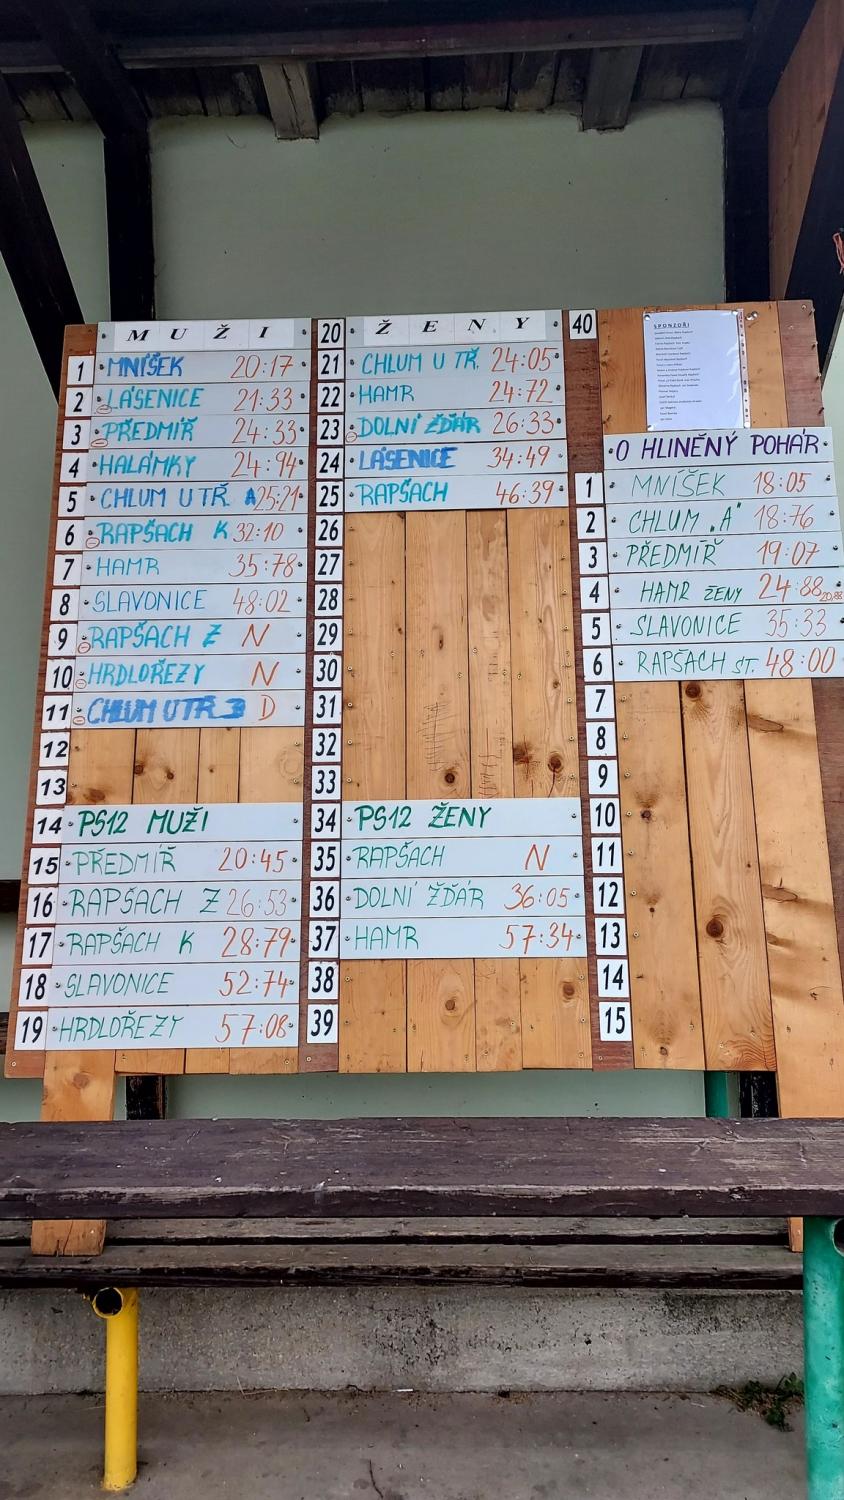 MUŽI
1 MNÍŠEK 20:17
2 LÁSENICE 21:33
3 PŘEDMÍŘ 24:33
4 HALÁMKY 24:94
5 CHLUM U TŘ. A 25:21
6 RAPŠACH K 32:10
7 HAMR 35:78
8 SLAVONICE 48:02
9 RAPŠACH Z N
10 HRDLOŘEZY N
11 CHLUM U TŘ. D
12
13
14 PS12 MUŽI
15 PŘEDMÍŘ 20:45
16 RAPŠACH Z 26:53
17 RAPŠACH K 28:79
18 SLAVONICE 52:74
19 HRDLOŘEZY 57:08
20 ŽENY
21 CHLUM U TŘ. 24:05
22 HAMR 24:72
23 DOLNÍ ŽĎÁR 26:33
24 LÁSENICE 34:49
25 RAPŠACH 46:39
26
27
28
29
30
31
32
33
34 PS12 ŽENY
35 RAPŠACH N
36 DOLNÍ ŽĎÁR 36:05
37 HAMR 57:34
38
39
40
SPONZOŘI
O HLINĚNÝ POHÁR
1 MNÍŠEK 18:05
2 CHLUM "A" 18:76
3 PŘEDMÍŘ 19:07
4 HAMR ŽENY 24:88
5 SLAVONICE 35:33
6 RAPŠACH ST. 48:00
7
8
9
10
11
12
13
14
15